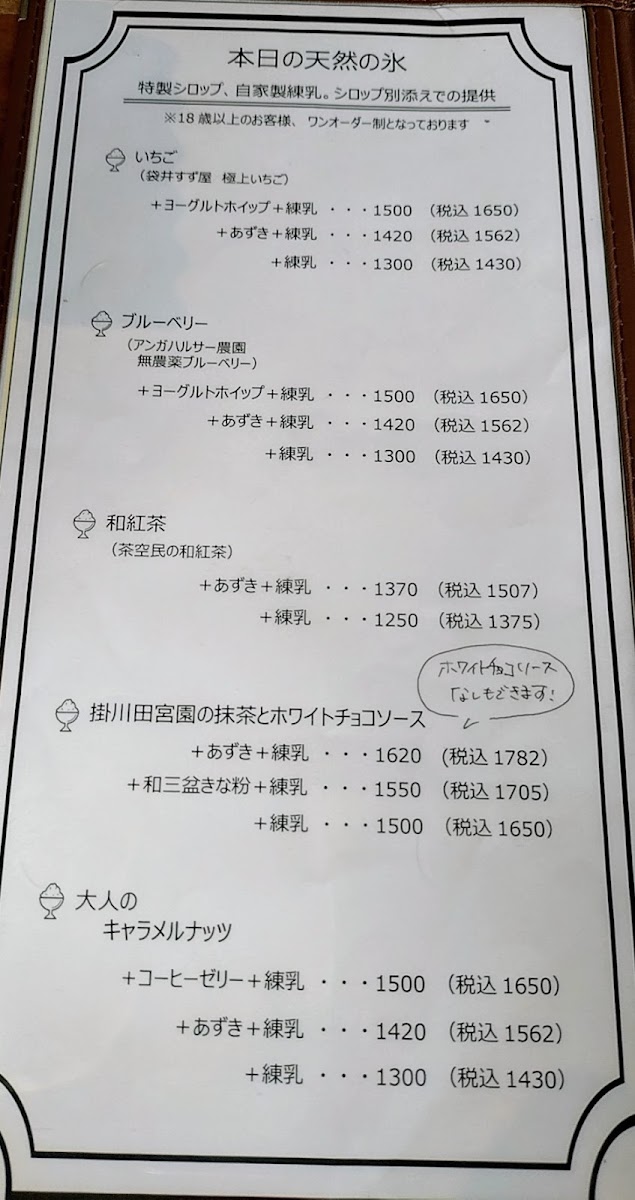 本日の天然の氷
特製シロップ、自家製練乳。シロップ別添えでの提供
※18歳以上のお客様、ワンオーダー制となっております
いちご
（袋井すず屋 極上いちご）
＋ヨーグルトホイップ＋練乳 ・・・1500 （税込1650）
＋あずき＋練乳 ・・・1420 （税込1562）
＋練乳 ・・・1300 （税込1430）
ブルーベリー
（アンガハルサー農園
無農薬ブルーベリー）
＋ヨーグルトホイップ＋練乳 ・・・1500 （税込1650）
＋あずき＋練乳 ・・・1420 （税込1562）
＋練乳 ・・・1300 （税込1430）
和紅茶
（茶空民の和紅茶）
＋あずき＋練乳 ・・・1370 （税込1507）
＋練乳 ・・・1250 （税込1375）
ホワイトチョコソース
なしもできます!
掛川田宮園の抹茶とホワイトチョコソース
＋あずき＋練乳 ・・・1620 （税込1782）
＋和三盆きな粉＋練乳 ・・・1550 （税込1705）
＋練乳 ・・・1500 （税込1650）
大人の
キャラメルナッツ
＋コーヒーゼリー＋練乳 ・・・1500 （税込1650）
＋あずき＋練乳 ・・・1420 （税込1562）
＋練乳 ・・・1300 （税込1430）